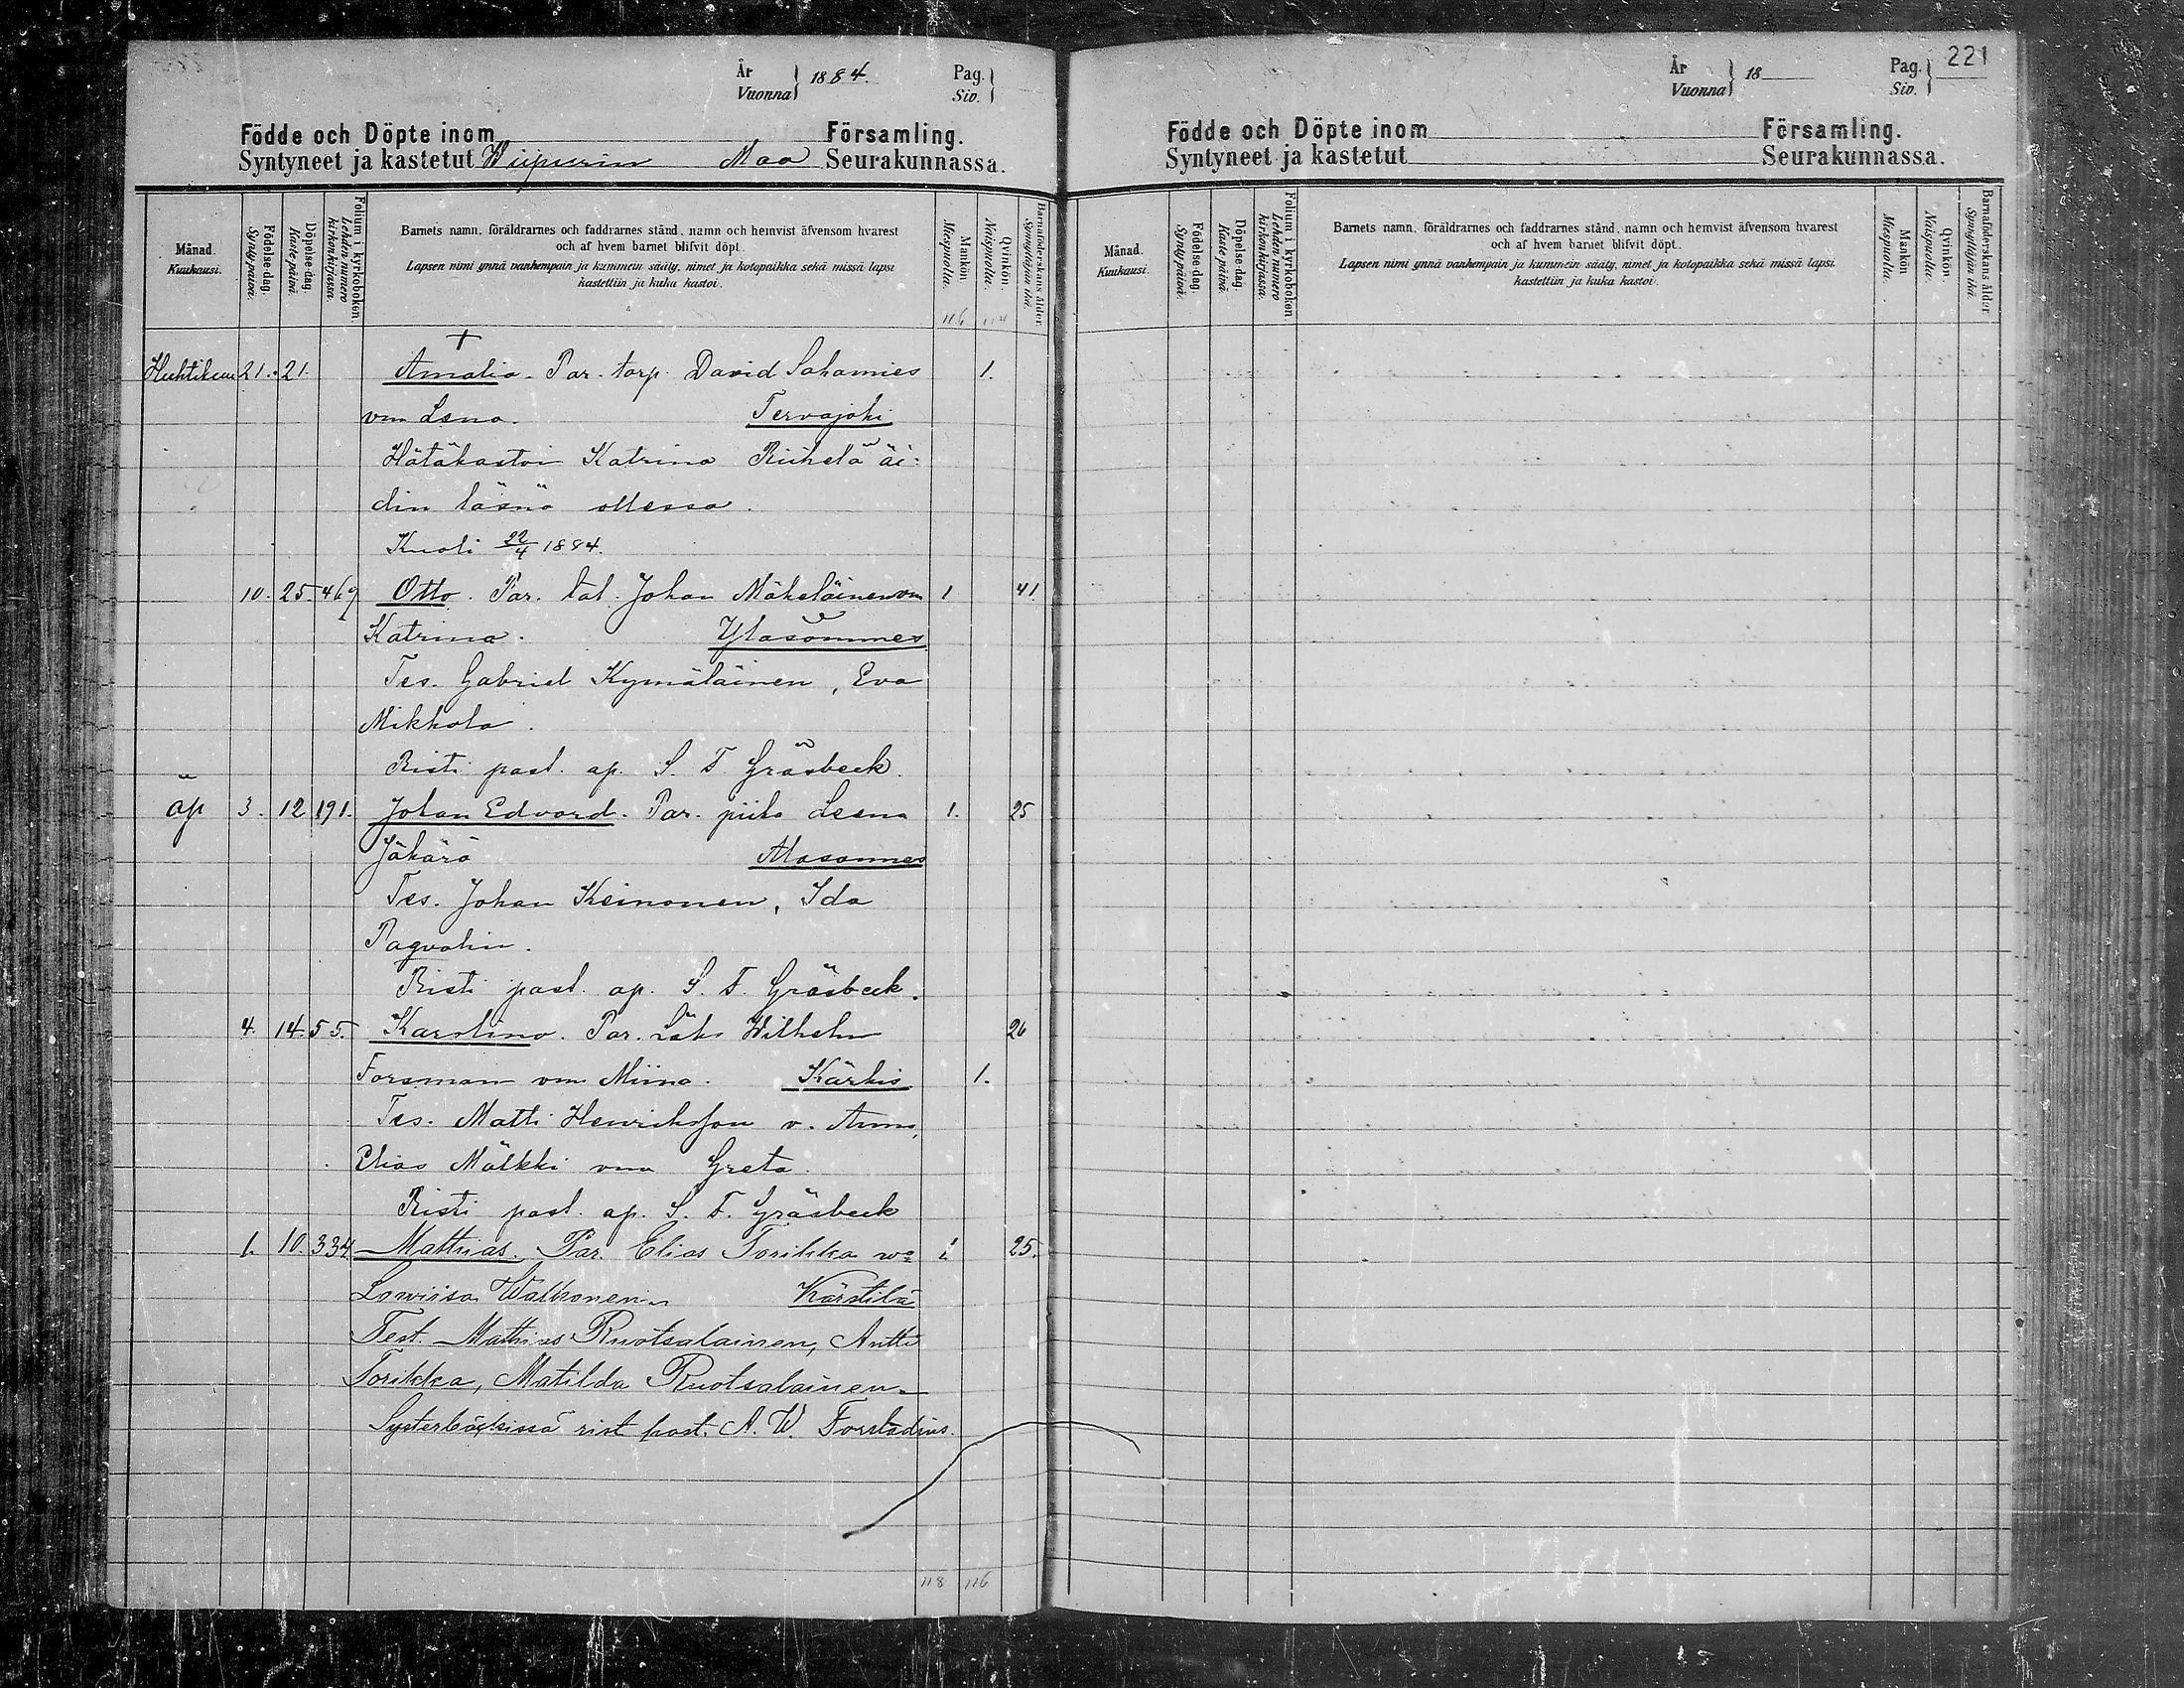 År
Vuonna
1884.
Pag.
Siv.
Födde och Döpte inom Församling.
Syntyneet ja kastetut Wiipurin Maa Seurakunnassa.
Månad.
Kuukausi.
Födelse-dag.
Synty-päivä.
Döpelse-dag.
Kaste-päivä.
Folium i kyrkoboken.
Lehden numero
kirkonkirjassa.
Barnets namn, föräldrarnes och faddrarnes stånd, namn och hemvist äfvensom hvarest
och af hvem barnet blifvit döpt.
Lapsen nimi ynnä vanhempain ja kummein sääty, nimet ja kotopaikka sekä missä lapsi
kastettiin ja kuka kastoi.
Mankön.
Miespuolta.
Qvinkön.
Naispuolta.
Barnaföderskans ålder.
Synnyttäjän ikä.
116 114
+
Huhtikuu 21. 21. Amalia. Par. torp. David Sahamies 1.
vm Lena. Tervajoki
Hätäkastoi Katrina Riihelä äi-
din läsnä ollessa.
Kuoli 22/4 1884.
10. 25. 469 Otto. Par. tal. Johan Mäkeläinen vm 1 41
Katrina. Yläsommee
Tes. Gabriel Kymäläinen, Eva
Mikkola.
Risti past. ap. S. F. Gräsbeck.
äp 3. 12 191. Johan Edvard. Par. piika Leena 1. 25
Jäkärä Alasommee
Tes. Johan Keinonen, Ida
Pagvalin.
Risti past. ap. S. F. Gräsbeck.
4. 14. 55. Karolina. Par. Wilhelm 26
Forsman vm Miina. Kärkis 1.
Tes. Matti Henriksson v. Anna,
Elias Mälkki vm Greta.
Risti past. ap. S. F. Gräsbeck
1. 10. 334 Mathias. Par. Elias Torikka wa 1 25.
Lowiisa Walkonen Kärstilä
Test. Mathias Ruotsalainen, Antti
Torikka, Matilda Ruotsalainen
Systerbäckissä rist past. A. W. Forstadius.
118 116
221
År
Vuonna
18
Pag.
Siv.
Födde och Döpte inom Församling.
Syntyneet ja kastetut Seurakunnassa.
Månad.
Kuukausi.
Födelse-dag.
Synty-päivä.
Döpelse-dag.
Kaste-päivä.
Folium i kyrkoboken.
Lehden numero
kirkonkirjassa.
Barnets namn, föräldrarnes och faddrarnes stånd, namn och hemvist äfvensom hvarest
och af hvem barnet blifvit döpt.
Lapsen nimi ynnä vanhempain ja kummein sääty, nimet ja kotopaikka sekä missä lapsi
kastettiin ja kuka kastoi.
Mankön
Miespuolta.
Qvinkön
Naispuolta.
Barnaföderskans ålder.
Synnyttäjän ikä.